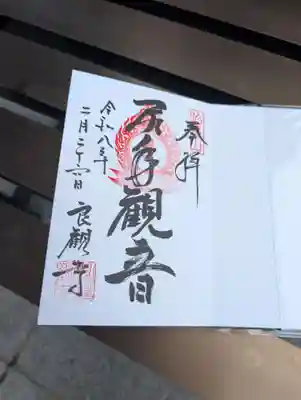 奉拝
千手観音
令和八年
二月二十六日
良観寺